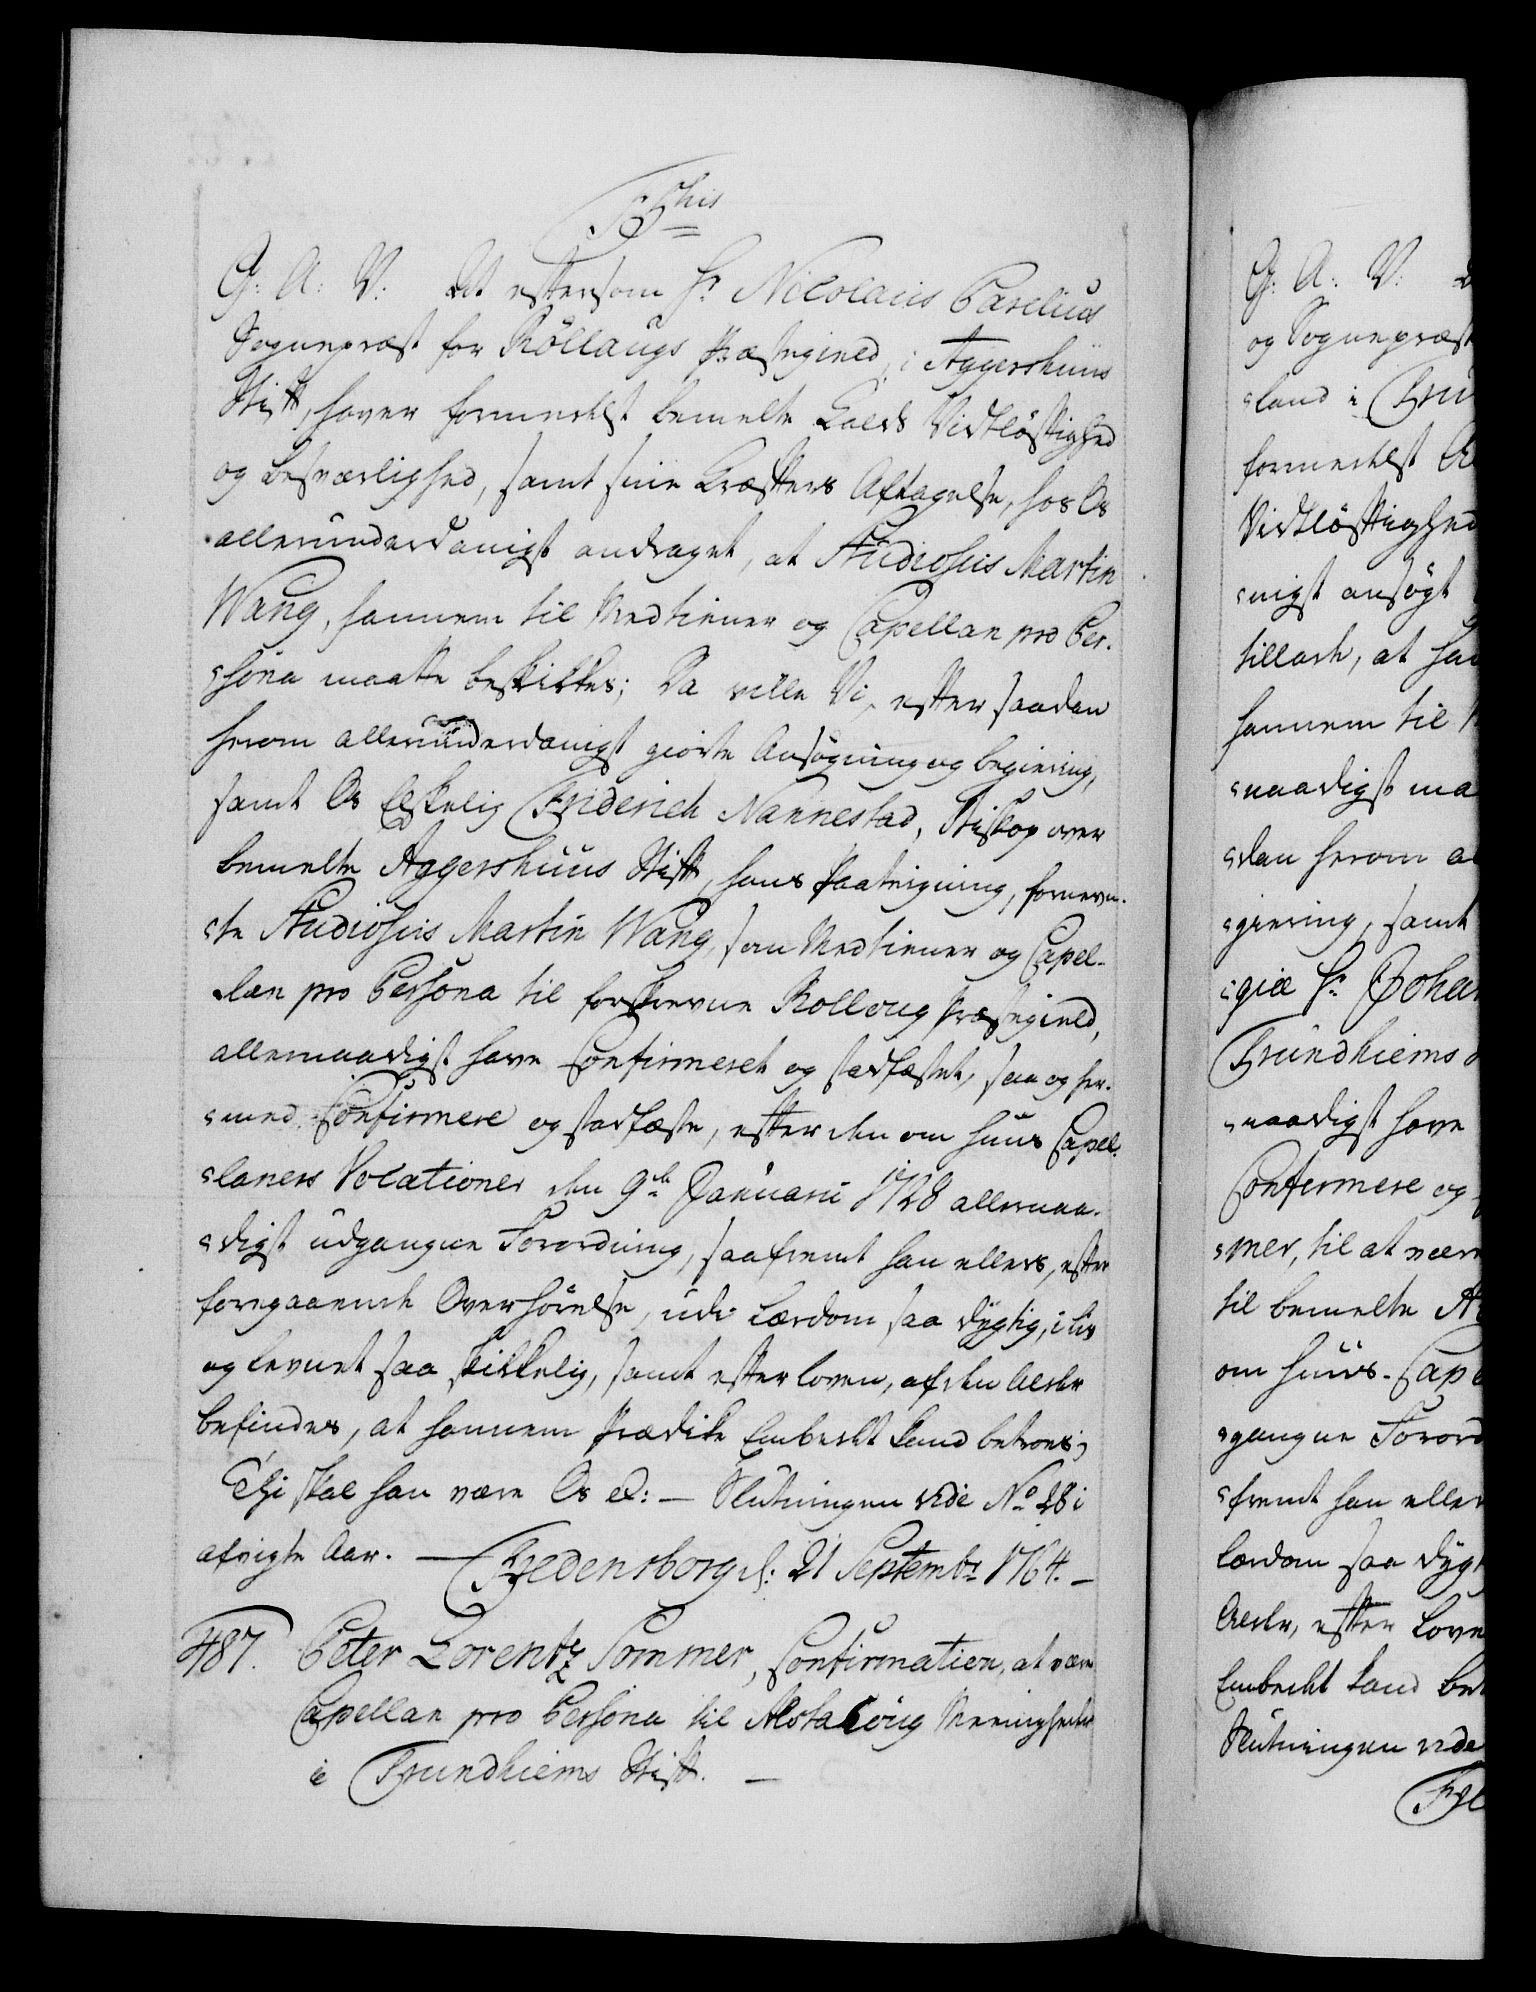 G: A: V: At eftersom Hr Nicolaus Parelius
Sognepræst for Röllaugs Præstegield, i Aggershuus
Stift, haver formedelst bemelte Kalds Vidtløftighed
og besværlighed, samt sine Kræfters Aftagelse, hos Os
allerunderdanigst andraget, at Studiosus Martin
Wang, hannem til Medtiener og Capellan pro Per-
sona maatte beskikkes; Da ville Vi, efter saadan
herom allerunderdanigst giorte Ansøgning og begiering,
samt Os Elskelig Friderich Nannestad, Biskop over
bemelte Aggershuus Stift, hans Paategning, fornevn-
te Studiosus Martin Wang, som Medtiener og Capel-
lan pro Persona til forskrevne Rolloug Præstegield,
allernaadigst have Confirmeret og stadfæstet, saa og her-
med Confirmere og stadfæste, efter den om Huus Capel-
laners Vocationer den 9de Januarii 1728 allernaa-
digst udgangne Forordning, saafremt han ellers, efter
foregaaende Overhørelse, udi Lærdom saa dygtig, i liv
og levnet saa skikkelig, samt efter loven, af den Alder
befindes, at hannem Prædike Embedet kand betroes;
Thi skal han være Os &: — Slutningen vide No 28 i
afvigte Aar. — Fredensborg d: 21 Septembr 1764. —
487. Peter Lorentz Sommer, Confirmation, at være
Capellan pro Persona til Alstahoug Menigheder
i Trundhiems Stift. —
G: A: V:
og Sognepræst
land i Trun
formedelst
Vidtløftighed
nigst ansøgt
tillade, at han
hannem til
naadigst ma
dan herom al
giering, samt
giæ Hr Johan
Trundhiems
naadigst have
Confirmere og
mer, til at være
til bemelte Al
om Huus-Cape
gangne Forord
fremt han eller
Lærdom saa dyg
Alder, efter Love
Embedet kand bet
Slutningen vide
Fre